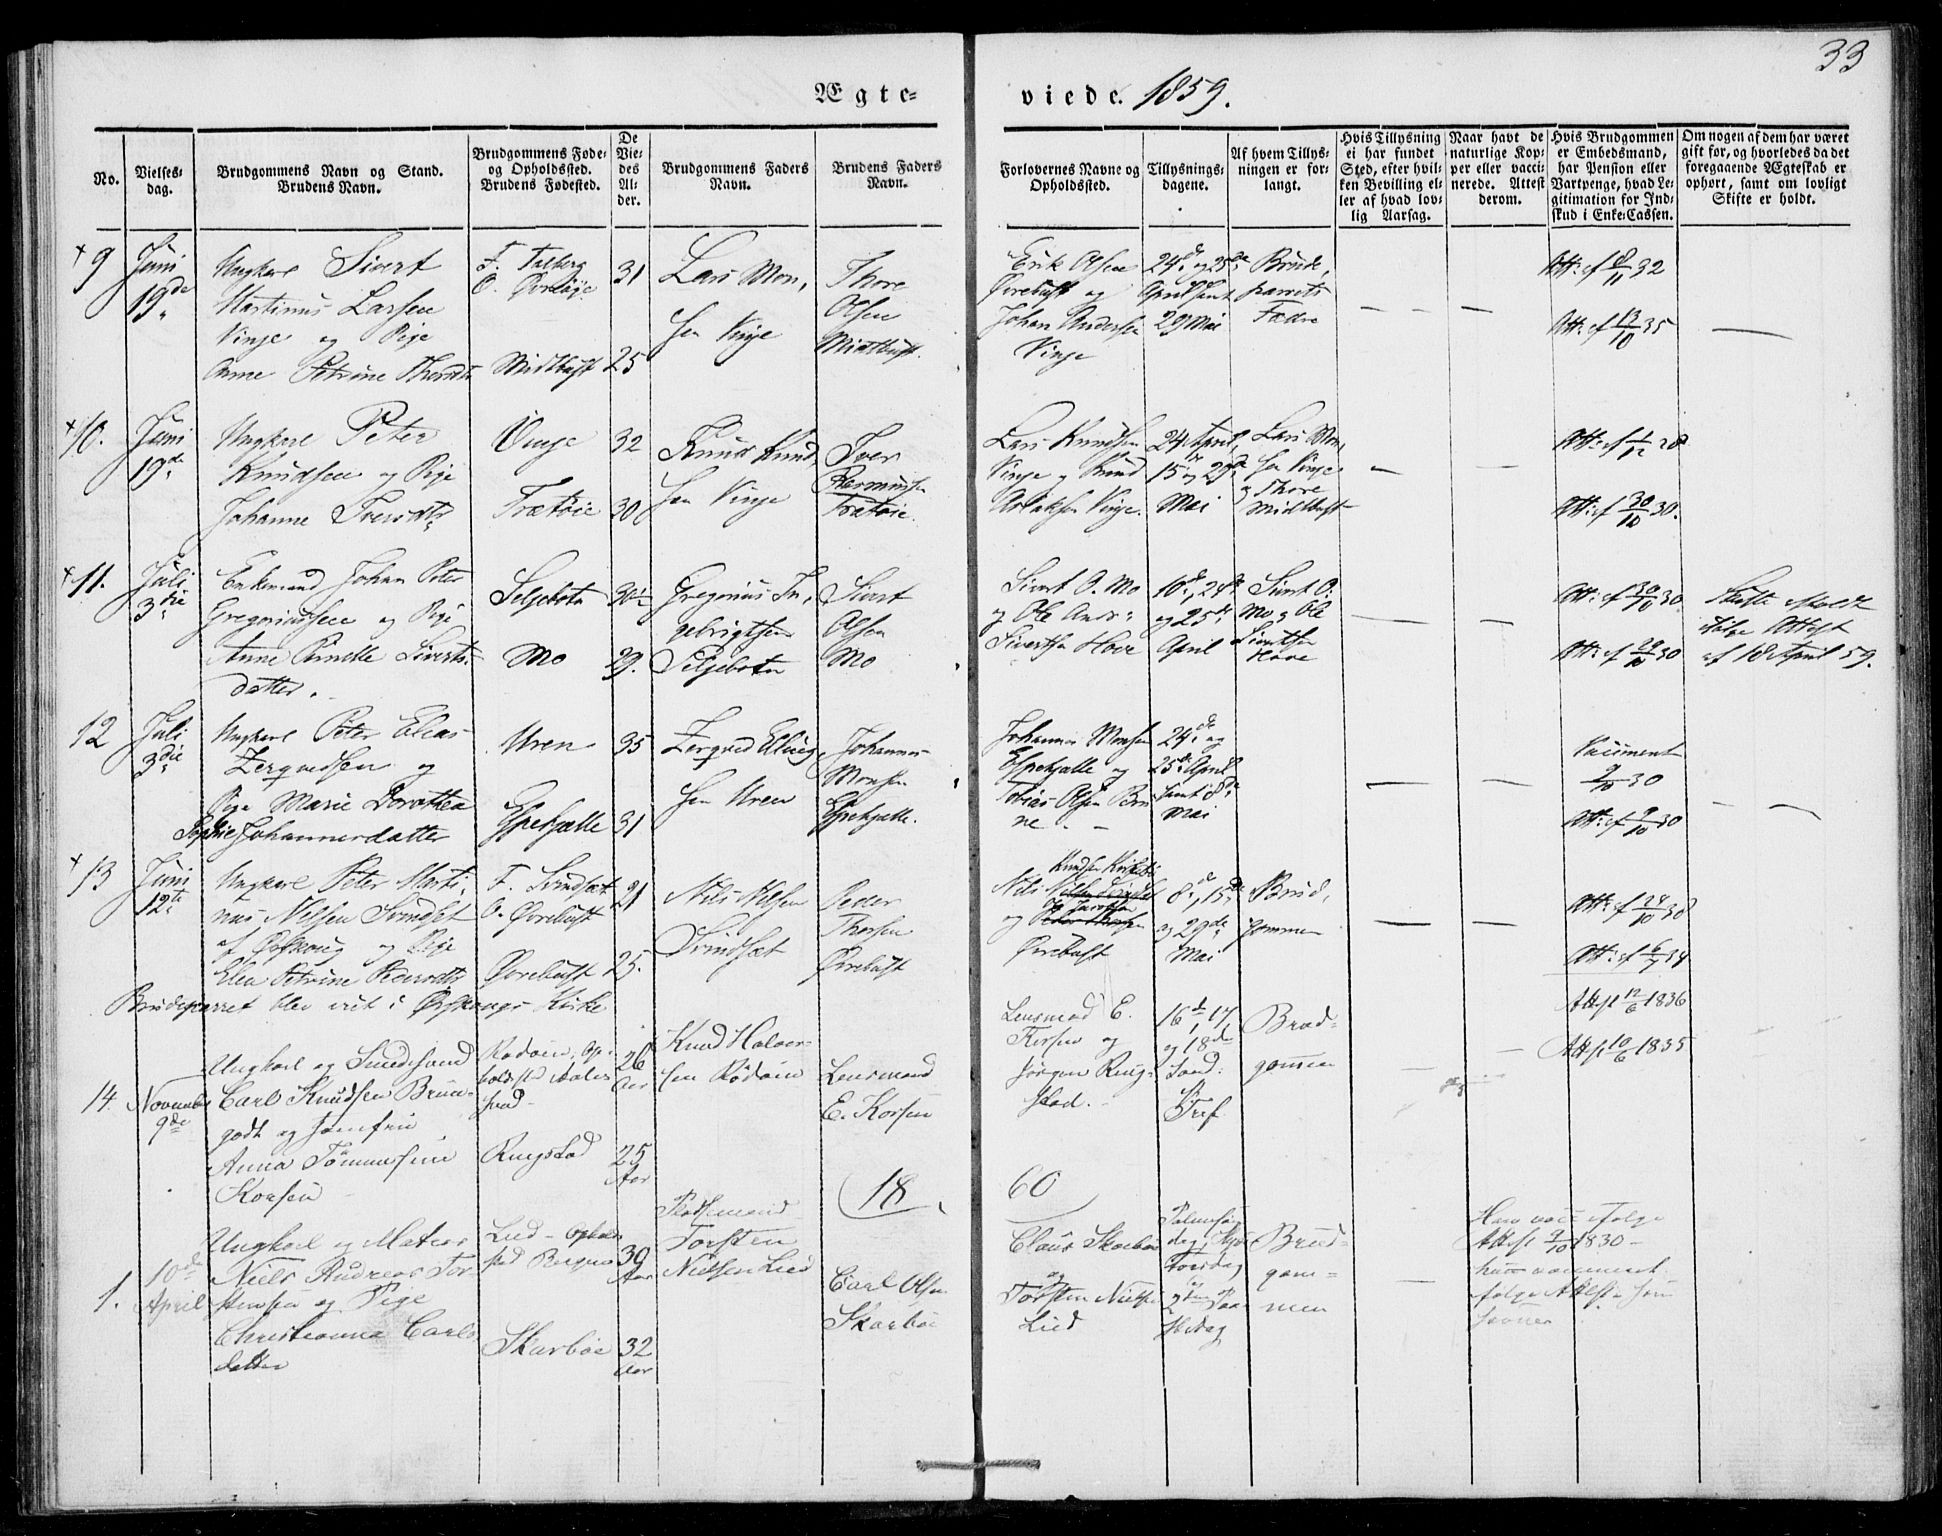 33
Ægteviede. 1859.
No.
Vielsesdag.
Brudgommens Navn og Stand. Brudens Navn.
Brudgommens Føde- og Opholdssted. Brudens Fødested.
De Viedes Alder.
Brudgommens Faders Navn.
Brudens Faders Navn.
Forlovernes Navne og Opholdssted.
Tillysningsdagene.
Af hvem Tillysningen er forlangt.
Hvis Tillysning ei har fundet Sted, efter hvilken Bevilling eller af hvad lovlig Aarsag.
Naar havt de naturlige Kopper eller vaccinerede. Attest derom.
Hvis Brudgommen er Embedsmand, har Pension eller Vartpenge, hvad Legitimation for Indskud i Enke-Cassen.
Om nogen af dem har været gift før, og hvorledes da det foregaaende Ægteskab er ophørt, samt om lovligt Skifte er holdt.
+ 9
Juni 19de
Ungkarl Sivert
Martinus Larsen
Vinje og Pige
Anne Petrine Thorsdtr
F. Talberg
Midtbust
31
25
Lars Mon,
sen Vinje
Thore
Olsen
Midtbust.
Erik Olsen
Øvrebust og
Johan Andersen
Vinje
24d. og 25de
April samt
29 Mai
Brude,
parrets
Fædre
Att: af 8/11 32
Att: af 13/10 35
+ 10.
Juni 19de
Ungkarl Peter
Knudsen og Pige
Johanne Iversdtr
Vinje
Trætøie
32
30
Knud Knud,
sen Vinje
Iver
Rasmussen
Trætøie.
Lars Knudsen
Vinje og Knud
Aslaksen Vinje.
24 April,
15 og 29de
Mai
Lars Mon,
sen Vinje
og Thore
Midtbust
Att: af 1/12 28
Att: af 30/10 30.
+ 11.
Juli 3die
Enkemand Johan Peter
Gregoriussen og Pige
Anne Pernelle Siverts,
datter.
Seljebotn
Mo
30 1/2
29.
Gregorius In,
gebrigtsen
Seljebotn
Sivert
Olsen
Mo
Sivert O. Mo
og Ole Andr:
Sivertsen Hove
10de, 24de
og 25de
April
Sivert O.
Mo og Ole
Sivertsen
Hove
Att: af 30/10 30
Att: af 29/10 30
Skifte holdt
ifølge Attest
af 18 April 59.
12
Juli 3die
Ungkarl Peter Elias
Zerqvedsen og
Pige Marie Dorothea
Sophie Johannesdatter
Uren
Espehjelle
35
31
Zerqved Elling,
sen Uren
Johannes
Monsen
Espehjelle.
Johannes Monsen
Espehjelle og
Tobias Olsen Bru
ne.
24de og
25de April
samt 8de
Mai
Vaccineret
9/10 30
Att: af 9/10 30
+ 13
Juni 12te
Ungkarl Peter Marti,
nus Nielsen Svindset
af Ørskoug og Pige
Elen Petrine Pedersdtr
F. Svindset
O. Øvrebust
Øvrebust
21
25.
Nils Nilsen
Svindset
Peder
Thorsen
Øvrebust
Nils Knudsen
og
Øvrebust
8de, 15de
og 29de
Mai
Brud,
gommen
Att: af 24/10 38
Att: af 6/7 34
Brudeparret blev viet i Ørskougs Kirke
14.
November 9de
Ungkarl og Smedesvend
Carl Knudsen Brun-
godt og Jomfru
Anna Tommesine
Korsen
Rødøin, Op-
holdsted Aalesund
Ringstad
26 Aar
25 Aar
Knud Halvor-
sen Rødøin
Lensmand
E. Korsen
Lensmed E.
Korsen og
Jørgen Ring-
stad.
16d, 17,
og 18de
Sønd.
Tref.
Brud-
gommen
Attst 12/6 1836
Attst 10/6 1835
18
60
1.
10de April
Ungkarl og Matros
Niels Andreas Tor-
stensen og Pige
Christianna Carls
datter
Lied - Ophold
sted Bergen
Skarbøe
30 Aar
32 Aar
Pladsemand
Torsten
Nielsen Lied
Carl Olsen
Skarbøe
Claus Skarbøe
og
Torsten Nielsen
Lied
Palmesøn
dag, Skjær
Torsdag
og
2den Paa
skedag
Brud-
gom-
men
Han vacc ifølge
Attest 9/10 1830 -
hun vaccineret
følge Attest